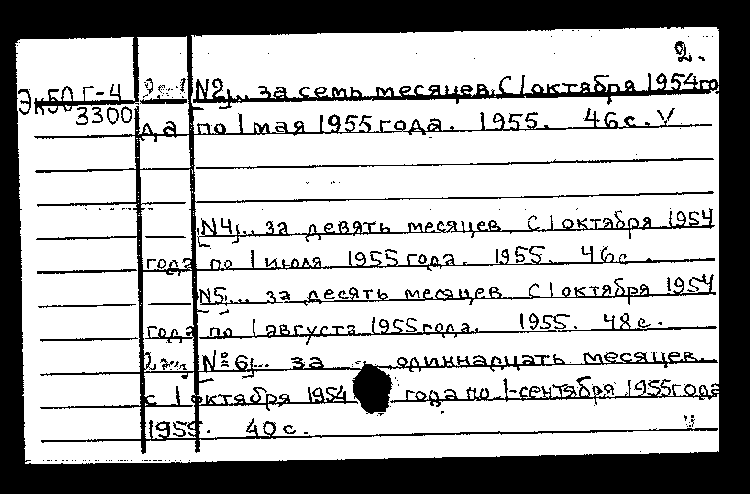 2.
Эк50 Г-4 2 экз [N2].. за семь месяцев. С 1 октября 1954 го
3300
да по 1 мая 1955 года. 1955. 46 с. V
[N4].. за девять месяцев С 1 октября 1954
года по 1 июля 1955 года. 1955. 46 с.
[N5]... за десять месяцев С 1 октября 1954
года по 1 августа 1955 года. 1955. 48 с.
2 экз [№ 6].. за одиннадцать месяцев.
с 1 октября 1954 года по 1-сентября 1955 года
1955. 40 с. V